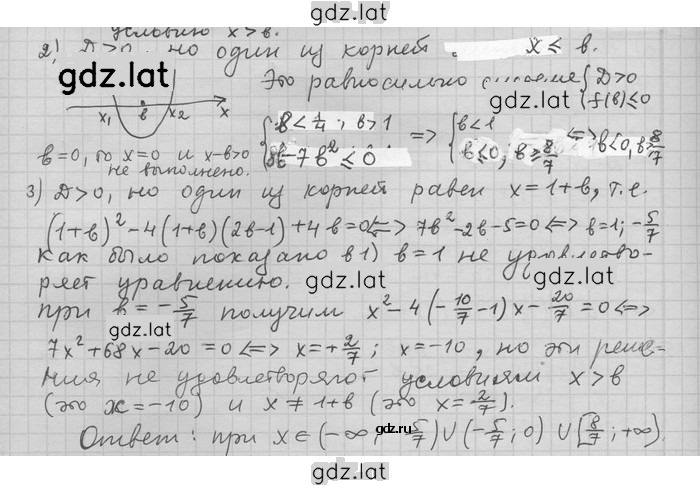 gdz.lat
условию x>b.
2) D>0, но один из корней x ≤ b.
gdz.lat
Это равносильно системе {D>0
{f(b)≤0
gdz.lat
x₁ b x₂ x
{b<1/4; b>1
{8b-7b²≤0 => {b<1
{b≤0; b≥8/7 <=> b<0, b≥8/7
b=0, то x=0 и x-b>0
не выполнено.
3) D>0, но один из корней равен x=1+b, т.е.
(1+b)²-4(1+b)(2b-1)+4b=0<=> 7b²-2b-5=0<=> b=1; -5/7
Как было показано в 1) b=1 не удовлетво-
ряет уравнению.
gdz.lat
при b=-5/7 получим x²-4(-10/7-1)x-20/7=0<=>
gdz.lat
7x²+68x-20=0<=> x=+2/7; x=-10, но эти реше-
ния не удовлетворяют условиям x>b
(это x=-10) и x≠1+b (это x=2/7).
gdz.ru
Ответ: при x∈(-∞; -5/7)∪(-5/7; 0)∪[8/7; +∞).
gdz.lat